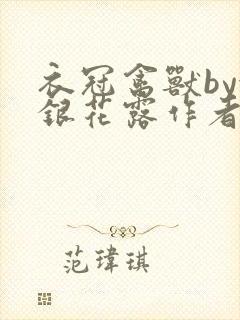 衣冠禽獸by
銀花露作者
范瑋琪